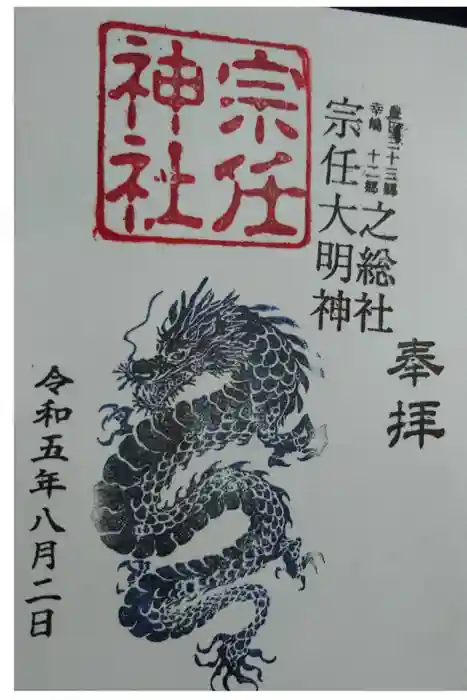 奉拝
豊田三十三郷
幸嶋十二郷
之総社
宗任大明神
宗任
神社
令和五年八月二日